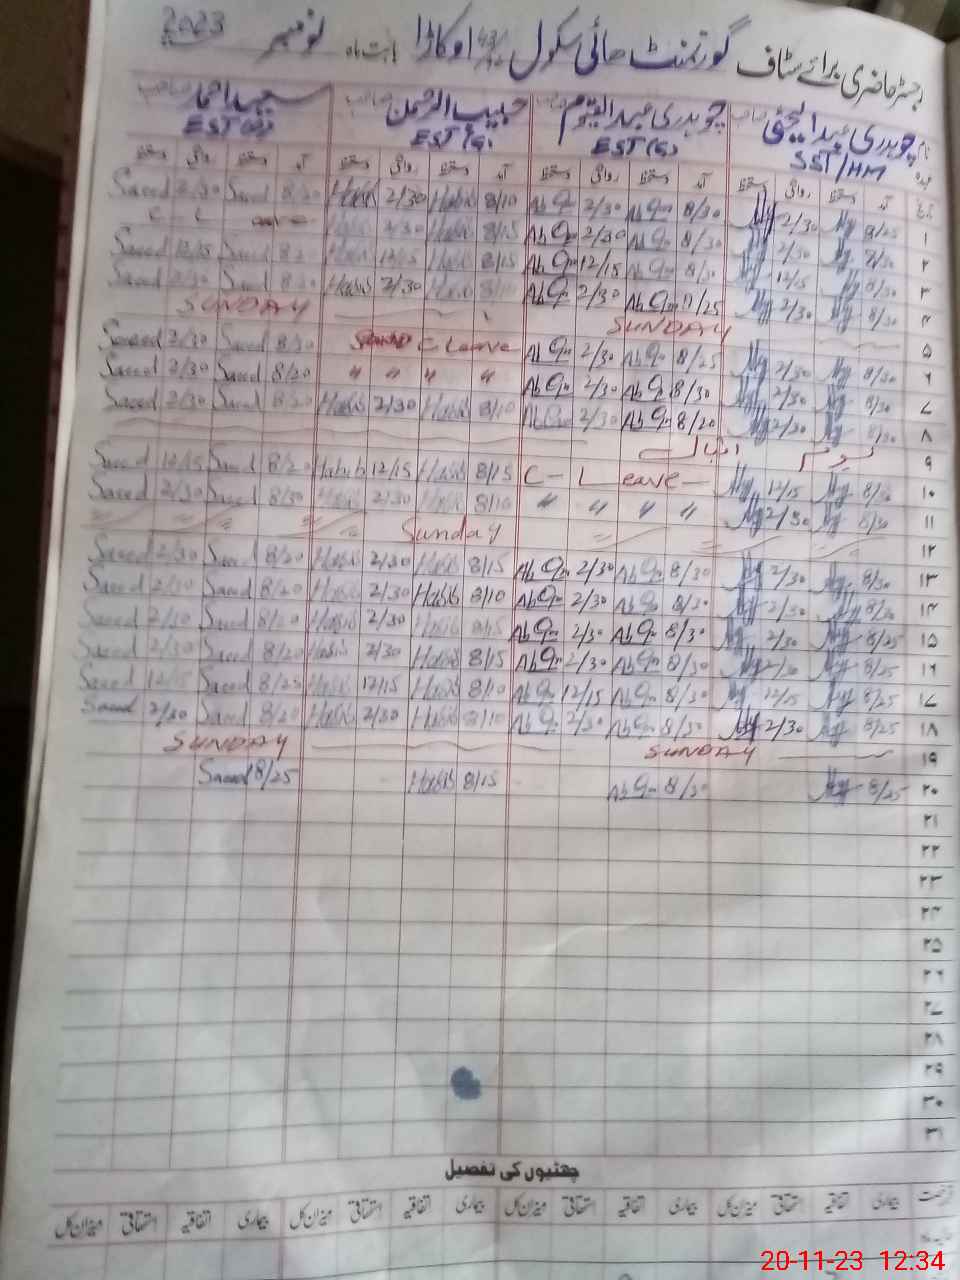 رجسٹر حاضری برائے سٹاف گورنمنٹ ہائی سکول اوکاڑا بابت ماہ نومبر 2023
چوہدری عبدالقیوم صاحب حبیب الرحمن صاحب
SST/HM EST(S) EST
آمد دستخط روانگی دستخط آمد دستخط روانگی دستخط آمد دستخط روانگی دستخط آمد دستخط روانگی دستخط
۱ 8/25 2/30 8/30 Ab Q 2/30 Ab Q 8/10 Habib 2/30 Habib 8/30 Saeed 2/30 Saeed
۲ 2/30 8/30 Ab Q 2/30 Ab Q 8/15 Habib 2/30 Habib C-Leave
۳ 8/30 12/15 8/30 Ab Q 12/15 Ab Q 8/15 Habib 12/15 Habib 8/20 Saeed 12/15 Saeed
۴ 8/30 2/30 Ab Q 2/30 Ab Q 8/10 Habib 2/30 Habib Saeed 2/30 Saeed
۵ SUNDAY SUNDAY
۶ 8/30 2/30 8/25 Ab Q 2/30 Ab Q C Leave 8/30 Saeed 2/30 Saeed
۷ 8/30 2/30 8/30 Ab Q 2/30 Ab Q " " " " 8/20 Saeed 2/30 Saeed
۸ 8/30 2/30 8/20 Ab Q 2/30 Ab Q 8/10 Habib 2/30 Habib 8/20 Saeed 2/30 Saeed
۹ یوم اقبال
۱۰ 8/30 12/15 C-Leave 8/15 Habib 12/15 Habib 8/20 Saeed 12/15 Saeed
۱۱ 8/30 2/30 " " " " 8/10 Habib 2/30 Habib 8/30 Saeed 2/30 Saeed
۱۲ Sunday
۱۳ 8/30 2/30 8/30 Ab Q 2/30 Ab Q 8/15 Habib 2/30 Habib 8/20 Saeed 2/30 Saeed
۱۴ 8/30 2/30 8/30 Ab Q 2/30 Ab Q 8/10 Habib 2/30 Habib 8/20 Saeed 2/30 Saeed
۱۵ 8/25 2/30 8/30 Ab Q 2/30 Ab Q 8/15 Habib 2/30 Habib 8/20 Saeed 2/30 Saeed
۱۶ 8/25 2/30 8/30 Ab Q 2/30 Ab Q 8/15 Habib 2/30 Habib 8/20 Saeed 2/30 Saeed
۱۷ 8/25 12/15 8/30 Ab Q 12/15 Ab Q 8/10 Habib 12/15 Habib 8/25 Saeed 12/15 Saeed
۱۸ 8/25 2/30 8/30 Ab Q 2/30 Ab Q 8/10 Habib 2/30 Habib 8/20 Saeed 2/30 Saeed
۱۹ SUNDAY SUNDAY
۲۰ 8/25 8/30 Ab Q 8/15 Habib 8/25 Saeed
۲۱
۲۲
۲۳
۲۴
۲۵
۲۶
۲۷
۲۸
۲۹
۳۰
۳۱
چھٹیوں کی تفصیل
رخصت بیماری اتفاقیہ استحقاقی میزان کل بیماری اتفاقیہ استحقاقی میزان کل بیماری اتفاقیہ استحقاقی میزان کل بیماری اتفاقیہ استحقاقی میزان کل
20-11-23 12:34